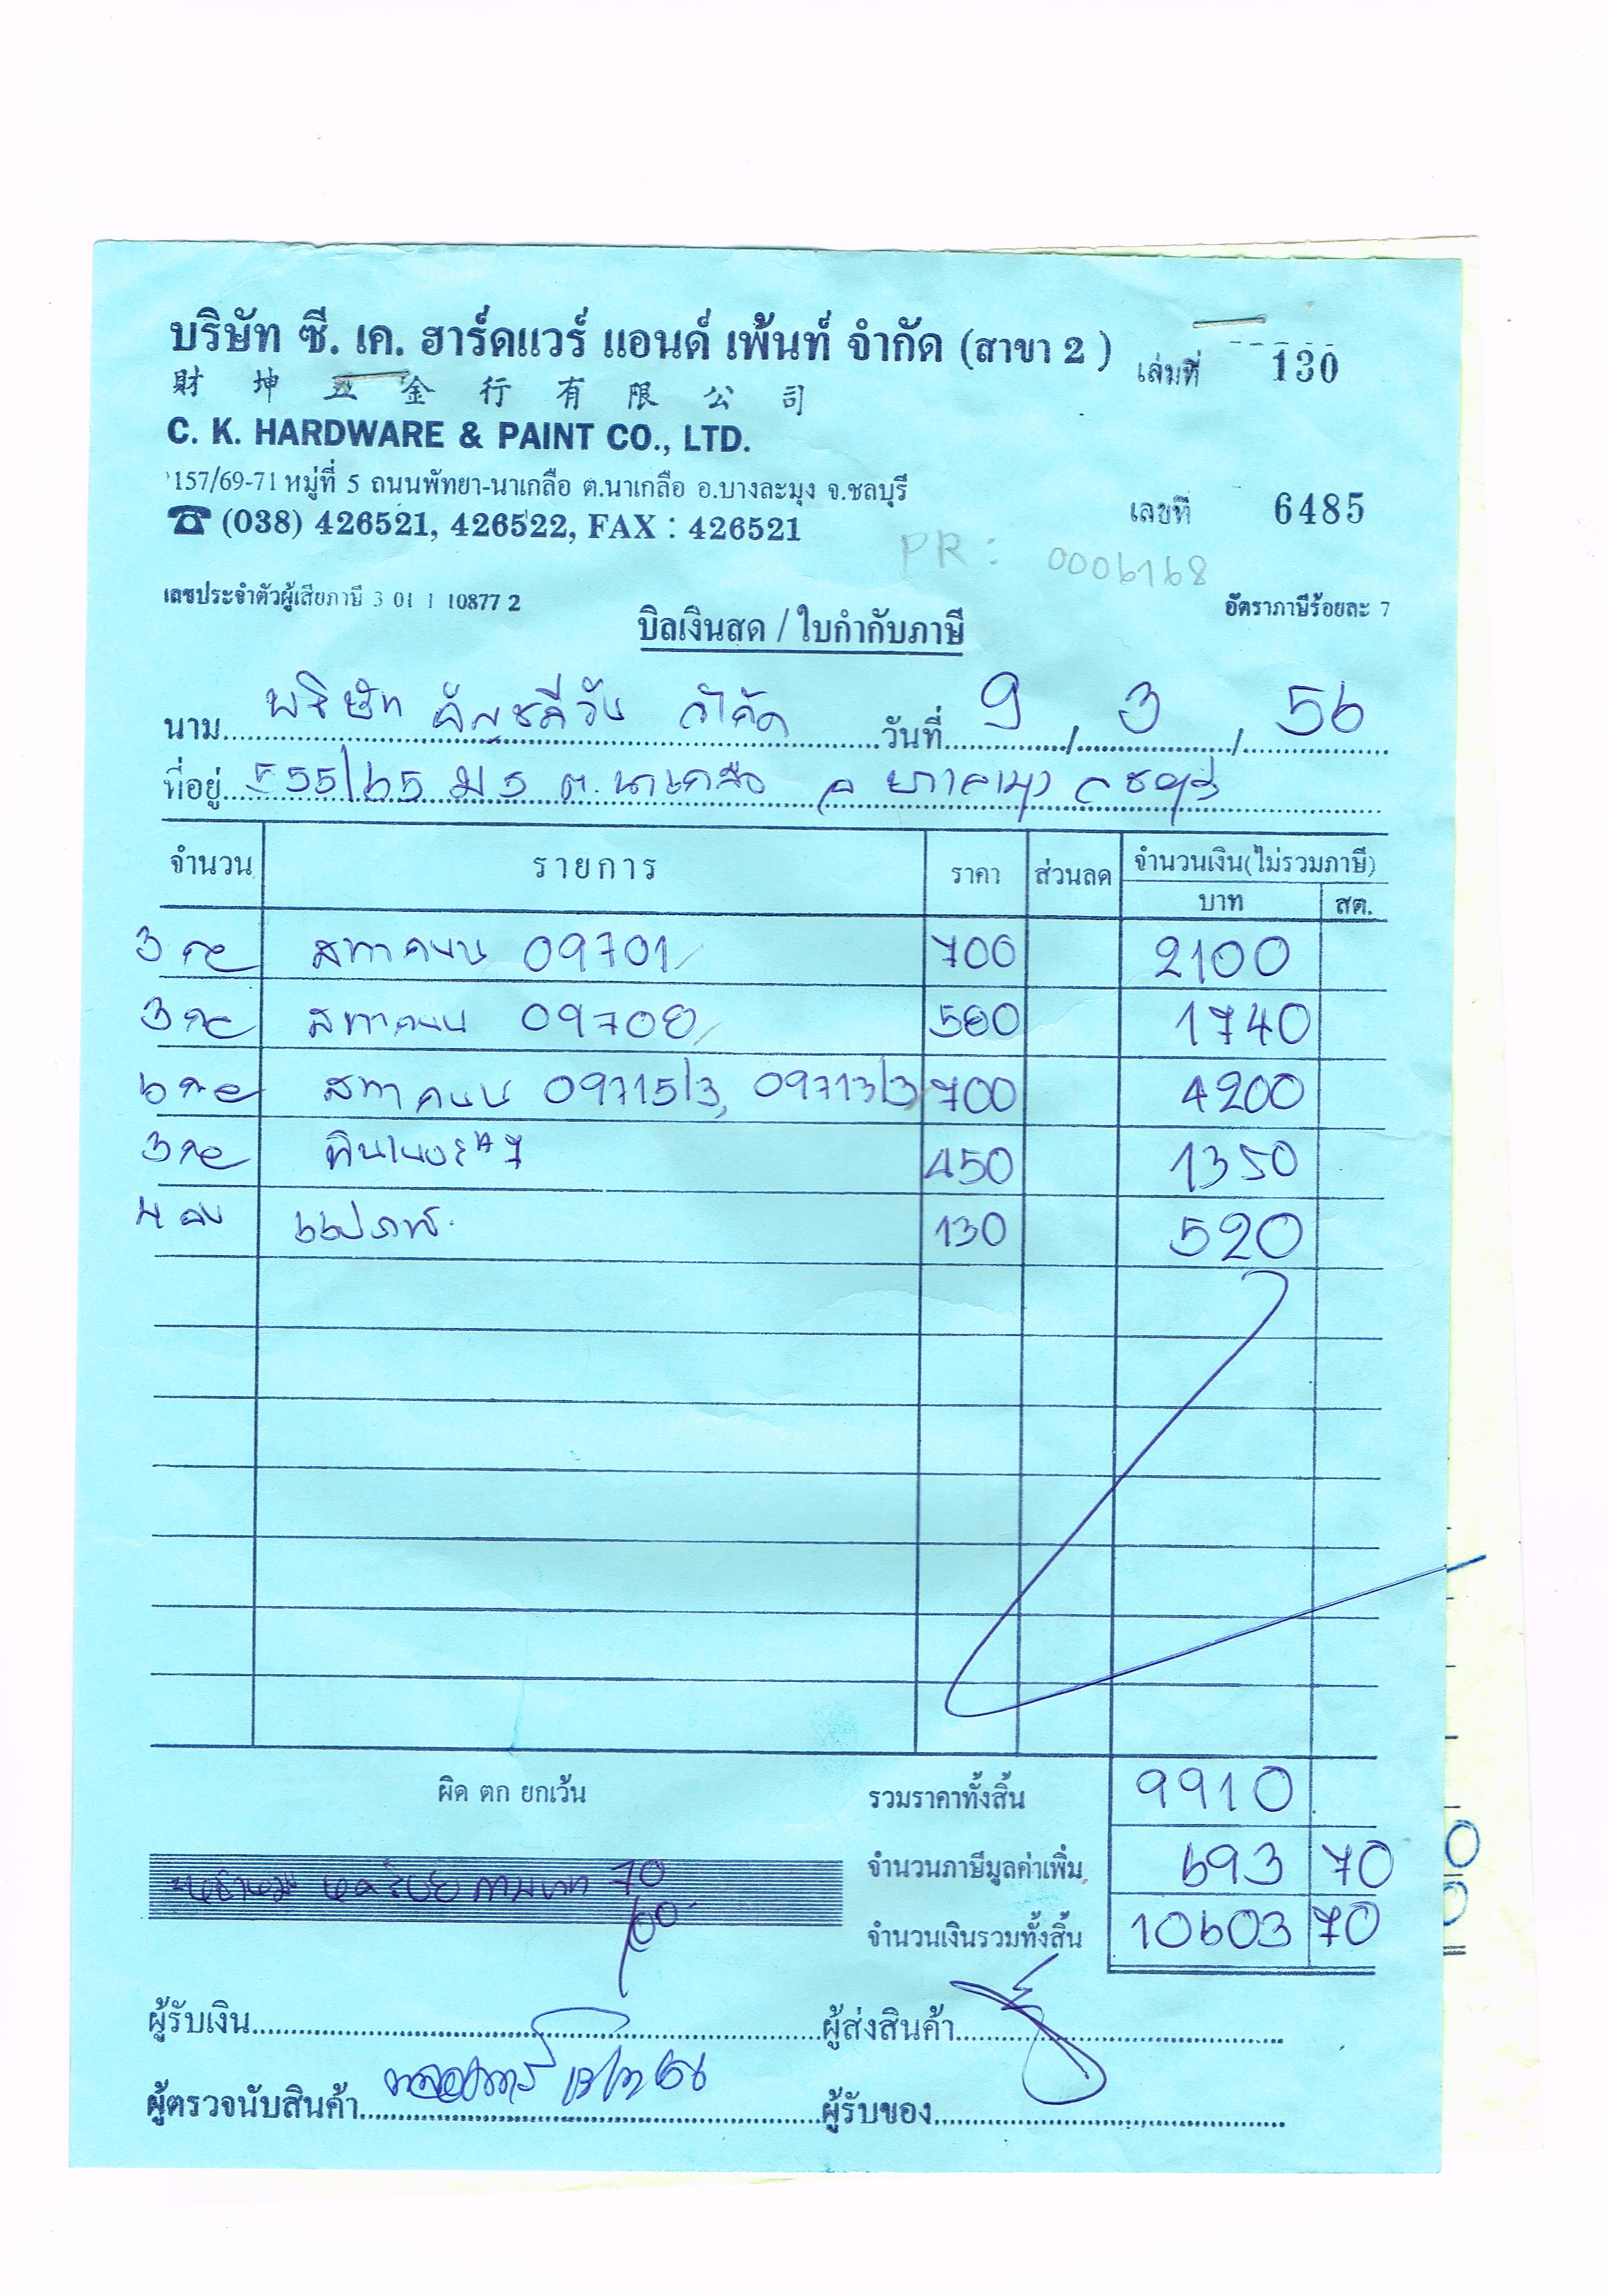 บริษัท ซี. เค. ฮาร์ดแวร์ แอนด์ เพ้นท์ จำกัด (สาขา 2 )
เล่มที่ 130
財坤五金行有限公司
C. K. HARDWARE & PAINT CO., LTD.
157/69-71 หมู่ที่ 5 ถนนพัทยา-นาเกลือ ต.นาเกลือ อ.บางละมุง จ.ชลบุรี
เลขที่ 6485
☎ (038) 426521, 426522, FAX : 426521
PR : 0006168
เลขประจำตัวผู้เสียภาษี 3 01 1 10877 2
อัตราภาษีร้อยละ 7
บิลเงินสด / ใบกำกับภาษี
นาม บริษัท จำกัด วันที่ 9 / 3 / 56
ที่อยู่ 555/65 ม 5 ต.นาเกลือ อ บางละมุง จ ชลบุรี
จำนวน รายการ ราคา ส่วนลด จำนวนเงิน(ไม่รวมภาษี)
บาท สต.
3 09701 700 2100
3 09708 580 1740
6 09715/3, 09713/3 700 4200
3 ทินเนอร์ 450 1350
4 130 520
ผิด ตก ยกเว้น
รวมราคาทั้งสิ้น 9910
จำนวนภาษีมูลค่าเพิ่ม 693 70
70
100
จำนวนเงินรวมทั้งสิ้น 10603 70
ผู้รับเงิน ผู้ส่งสินค้า
ผู้ตรวจนับสินค้า ผู้รับของ